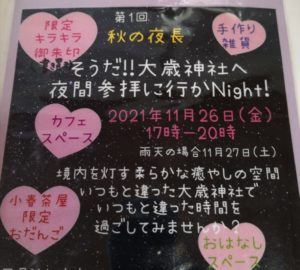 第1回
限定
キラキラ
御朱印
秋の夜長
手作り
雑貨
そうだ!!大歳神社へ
夜間参拝に行かNight!
カフェ
スペース
2021年11月26日(金)
17時ー20時
雨天の場合11月27日(土)
境内を灯す柔らかな癒やしの空間
いつもと違った大歳神社で
いつもと違った時間を
過ごしてみませんか?
小春茶屋
限定
おだんご
おはなし
スペース